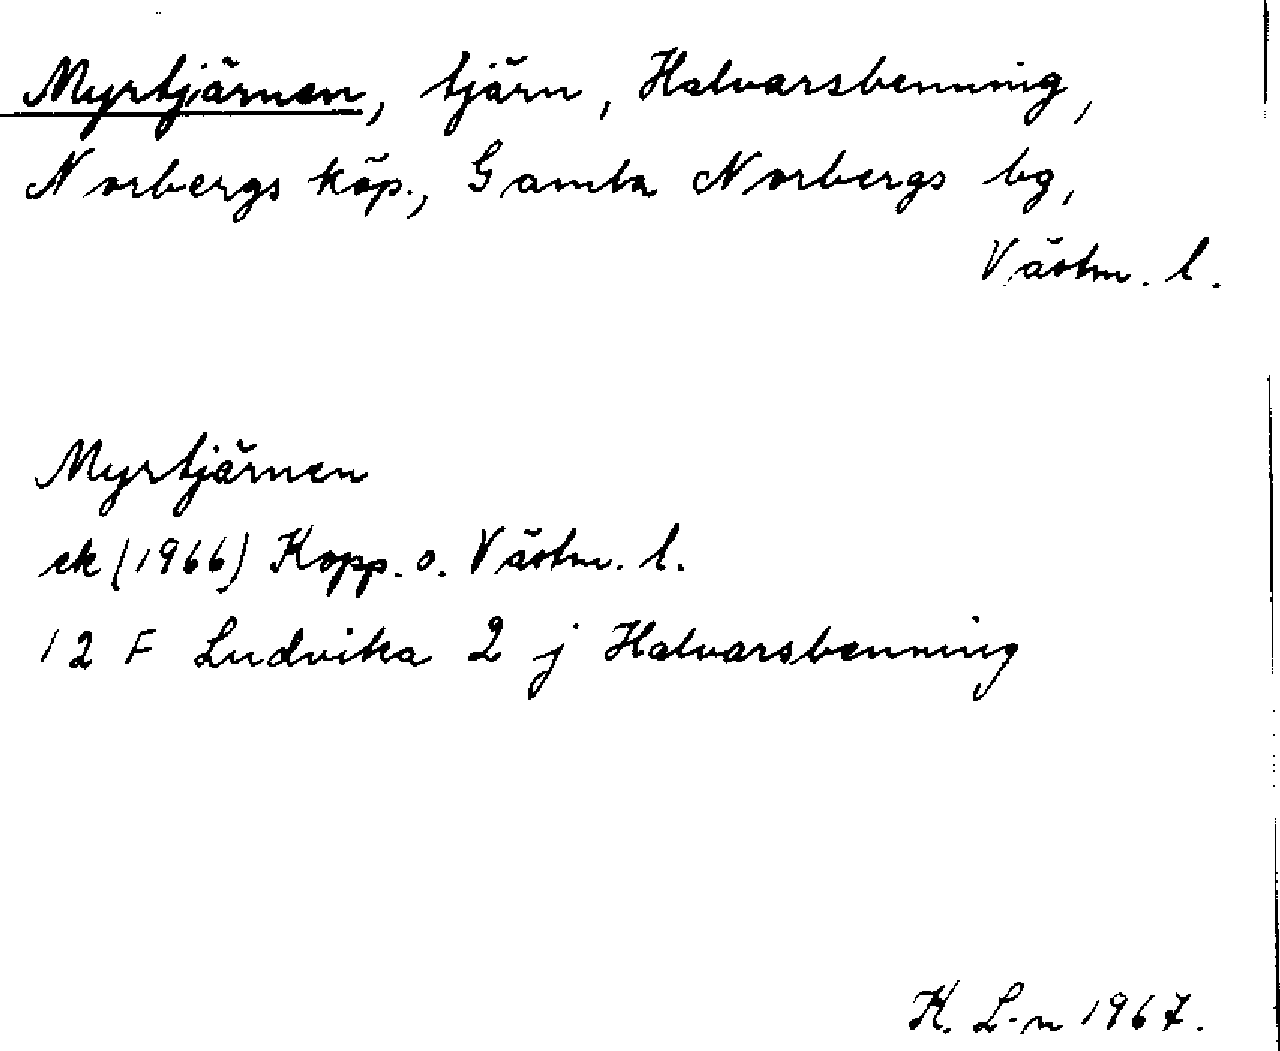 Myrtjärnen, tjärn, Halvarsbenning,
Norbergs köp., Gamla Norbergs bg,
Västm. l.
Myrtjärnen
ek (1966) Kopp. o. Västm. l.
12 F Ludvika 2 j Halvarsbenning
K. L-n 1967.